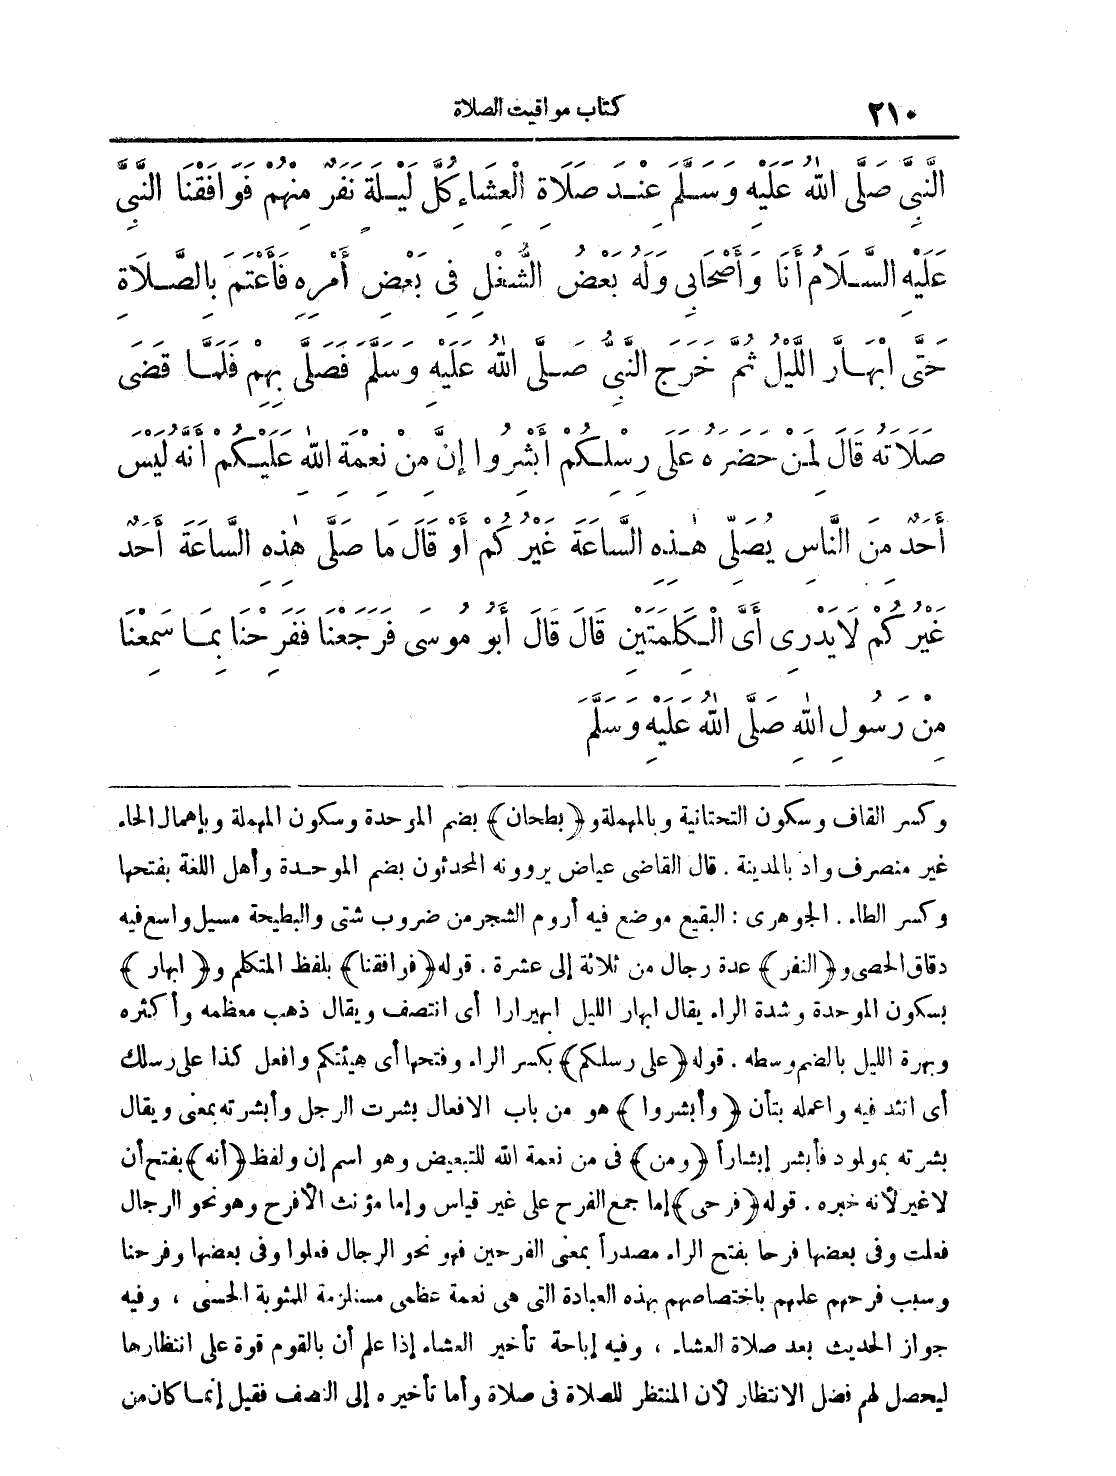 ٢١٠
كتاب مواقيت الصلاة
النَّبِىَّ صَلَّى اللهُ عَلَيْهِ وَسَلَّمَ عِنْدَ صَلَاةِ الْعِشَاءِ كُلَّ لَيْلَةٍ نَفَرٌ مِنْهُمْ فَوَافَقْنَا النَّبِىَّ
عَلَيْهِ السَّلَامُ أَنَا وَأَصْحَابِى وَلَهُ بَعْضُ الشُّغْلِ فِى بَعْضِ أَمْرِهِ فَأَعْتَمَ بِالصَّلَاةِ
حَتَّى ابْهَارَّ اللَّيْلُ ثُمَّ خَرَجَ النَّبِىُّ صَلَّى اللهُ عَلَيْهِ وَسَلَّمَ فَصَلَّى بِهِمْ فَلَمَّا قَضَى
صَلَاتَهُ قَالَ لِمَنْ حَضَرَهُ عَلَى رِسْلِكُمْ أَبْشِرُوا إِنَّ مِنْ نِعْمَةِ اللهِ عَلَيْكُمْ أَنَّهُ لَيْسَ
أَحَدٌ مِنَ النَّاسِ يُصَلِّى هٰذِهِ السَّاعَةَ غَيْرُكُمْ أَوْ قَالَ مَا صَلَّى هٰذِهِ السَّاعَةَ أَحَدٌ
غَيْرُكُمْ لَا يَدْرِى أَىَّ الْكَلِمَتَيْنِ قَالَ قَالَ أَبُو مُوسَى فَرَجَعْنَا فَفَرِحْنَا بِمَا سَمِعْنَا
مِنْ رَسُولِ اللهِ صَلَّى اللهُ عَلَيْهِ وَسَلَّمَ
وكسر القاف وسكون التحتانية وبالمهملة و﴿بطحان﴾ بضم الموحدة وسكون المهملة وبإهمال الحاء
غير منصرف واد بالمدينة . قال القاضى عياض يروونه المحدثون بضم الموحدة وأهل اللغة بفتحها
وكسر الطاء . الجوهرى : البقيع موضع فيه أروم الشجر من ضروب شتى والبطيحة مسيل واسع فيه
دقاق الحصى و﴿النفر﴾ عدة رجال من ثلاثة إلى عشرة . قوله ﴿فوافقنا﴾ بلفظ المتكلم و﴿ابهار﴾
بسكون الموحدة وشدة الراء يقال ابهار الليل ابهيرارا أى انتصف ويقال ذهب معظمه وأكثره
وبهرة الليل بالضم وسطه . قوله ﴿على رسلكم﴾ بكسر الراء وفتحها أى هيئتكم وافعل كذا على رسلك
أى اتئد فيه واعمله بتأن ﴿وأبشروا﴾ هو من باب الافعال بشرت الرجل وأبشرته بمعنى ويقال
بشرته بمولود فأبشر إبشاراً ﴿ومن﴾ فى من نعمة الله للتبعيض وهو اسم إن ولفظ ﴿أنه﴾ بفتح أن
لاغير لأنه خبره . قوله ﴿فرحى﴾ إما جمع الفرح على غير قياس وإما مؤنث الأفرح وهو نحو الرجال
فعلت وفى بعضها فرحا بفتح الراء مصدراً بمعنى الفرحين فهو نحو الرجال فعلوا وفى بعضها وفرحنا
وسبب فرحهم علمهم باختصاصهم بهذه العبادة التى هى نعمة عظمى مستلزمة للمثوبة الحسنى ، وفيه
جواز الحديث بعد صلاة العشاء ، وفيه إباحة تأخير العشاء إذا علم أن بالقوم قوة على انتظارها
ليحصل لهم فضل الانتظار لأن المنتظر للصلاة فى صلاة وأما تأخيره إلى النصف فقيل إنما كان من